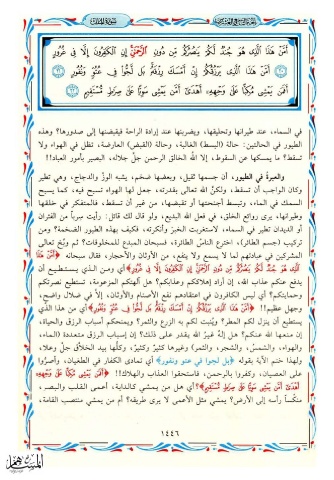 أَمَّنْ هَٰذَا الَّذِي هُوَ جُندٌ لَّكُمْ يَنصُرُكُم مِّن دُونِ الرَّحْمَٰنِ إِنِ الْكَافِرُونَ إِلَّا فِي غُرُورٍ
﴿٢٠﴾ أَمَّنْ هَٰذَا الَّذِي يَرْزُقُكُمْ إِنْ أَمْسَكَ رِزْقَهُ بَل لَّجُّوا فِي عُتُوٍّ وَنُفُورٍ ﴿٢١﴾
أَفَمَن يَمْشِي مُكِبًّا عَلَىٰ وَجْهِهِ أَهْدَىٰ أَمَّن يَمْشِي سَوِيًّا عَلَىٰ صِرَاطٍ مُّسْتَقِيمٍ ﴿٢٢﴾
في السماء، عند طيرانها وتحليقها، ويضربنها عند إرادة الراحة فيقبضنها إلى صدورها؟ وهذه
الطيور في الحالتين: حالة (البسط) الغالبة، وحالة (القبض) العارضة، تظل في الهواء ولا
تسقط؟ ما يمسكها عن السقوط، إلا الله الخالق الرحمن جلّ جلاله، البصير بأمور العباد!!
والعبرة في الطيور، أن جسمها ثقيل، وبعضها ضخم، يشبه الوزّ والدجاج، وهي تطير
وكان الواجب أن تسقط، ولكنّ الله تعالى بقدرته، جعل لها الهواء تسبح فيه، كما يسبح
السمك في الماء، وتبسط أجنحتها أو تقبضها، من غير أن تسقط، فالمتفكر في خلقها
وطيرانها، يرى روائع الخلق، في فعل الله البديع، ولو قال لك قائل: رأيت سرباً من الفئران
أو الديدان تطير في السماء، لاستغربت الخبرَ وأنكرته، فكيف بهذه الطيور الضخمة؟ ومن
تركيب (جسم الطائر)، اخترع الناسُ الطائرة، فسبحان المبدع للمخلوقات؟ ثم وبّخ تعالى
المشركين في عبادتهم لما لا يسمع ولا ينفع، من الأوثان والأحجار، فقال سبحانه ﴿أَمَّنْ هَٰذَا
الَّذِي هُوَ جُندٌ لَّكُمْ يَنصُرُكُم مِّن دُونِ الرَّحْمَٰنِ إِنِ الْكَافِرُونَ إِلَّا فِي غُرُورٍ﴾ أي ومن الذي يستطيع أن
يدفع عنكم عذاب الله، إن أراد إهلاككم وعذابكم؟ هل آلهتكم المزعومة، تستطيع نصرتكم
وحمايتكم؟ أي ليس الكافرون في اعتقادهم نفع الأصنام والأوثان، إلّا في ضلال واضح،
وجهل عظيم!! ﴿أَمَّنْ هَٰذَا الَّذِي يَرْزُقُكُمْ إِنْ أَمْسَكَ رِزْقَهُ بَل لَّجُّوا فِي عُتُوٍّ وَنُفُورٍ﴾ أي من هذا الذي
يستطيع أن ينزل لكم المطر؟ ويُنبت لكم به الزرع والثمر؟ ويمنحكم أسباب الرزق والحياة،
إن منعها الله عنكم؟ هل إلهٌ غيرُ الله يقدر على ذلك؟ إن إسباب الرزق متعددة (الماء،
والهواء، والشمسُ، والشجر، والثمر) وغيرها كثيرٌ وكثيرٌ، وكلّها بيد الخلّاق جلّ وعلا،
ولهذا ختم الآية بقوله ﴿بل لجوا في عتو ونفور﴾ أي تمادى الكفار في الطغيان، وأصرُّوا
على العصيان، وكفروا بالرحمن، فاستحقوا العذاب والهلاك!! ﴿أَفَمَن يَمْشِي مُكِبًّا عَلَىٰ وَجْهِهِ
أَهْدَىٰ أَمَّن يَمْشِي سَوِيًّا عَلَىٰ صِرَاطٍ مُّسْتَقِيمٍ﴾؟ أي هل من يمشي كالدابة، أعمى القلب والبصر،
منكّساً رأسه إلى الأرض؟ يمشي مثل الأعمى لا يرى طريقه؟ أم من يمشي منتصب القامة،
١٤٤٦